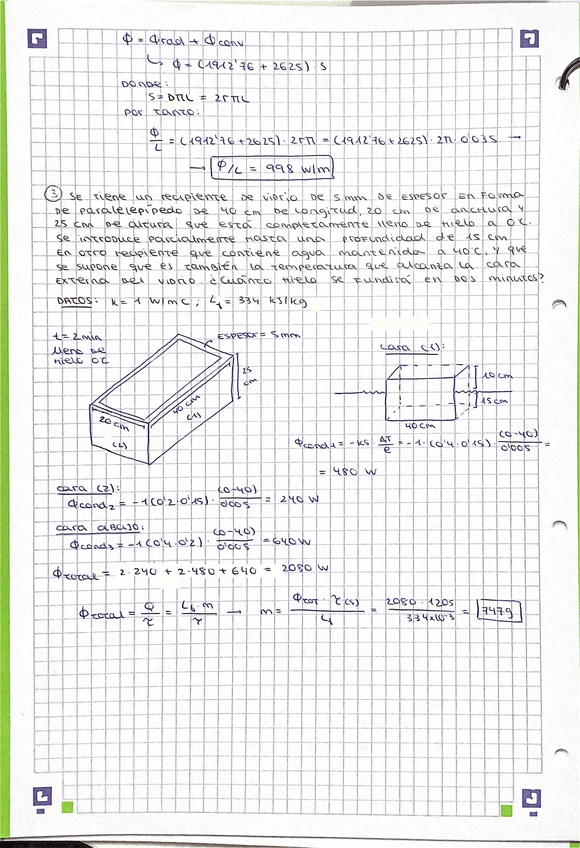 Φ = Φrad + Φconv
↳ Φ = (1912'76 + 2625) · S
DONDE:
S = DπL = 2rπL
POR TANTO:
Φ/L = (1912'76 + 2625) · 2rπ = (1912'76 + 2625) · 2π · 0'035 →
→ Φ/L = 998 W/m
③ SE TIENE UN RECIPIENTE DE VIDRIO DE 5 mm DE ESPESOR EN FORMA
DE PARALELEPÍPEDO DE 40 cm DE LONGITUD, 20 cm DE ANCHURA Y
25 cm DE ALTURA QUE ESTÁ COMPLETAMENTE LLENO DE HIELO A 0℃.
SE INTRODUCE PARCIALMENTE HASTA UNA PROFUNDIDAD DE 15 cm
EN OTRO RECIPIENTE QUE CONTIENE AGUA MANTENIDA A 40℃, Y QUE
SE SUPONE QUE ES TAMBIÉN LA TEMPERATURA QUE ALCANZA LA CARA
EXTERNA DEL VIDRIO. ¿CUÁNTO HIELO SE FUNDIRÁ EN DOS MINUTOS?
DATOS: k = 1 W/m℃ ; Lf = 334 KJ/kg
t = 2 min
LLENO DE
HIELO 0℃
ESPESOR = 5 mm
25
cm
40 cm
(1)
20 cm
(2)
CARA (1):
10 cm
15 cm
40 cm
Φcond1 = -KS ΔT/e = -1 · (0'4 · 0'15) · (0-40)/0'005 =
= 480 W
CARA (2):
Φcond2 = -1 (0'2 · 0'15) · (0-40)/0'005 = 240 W
CARA ABAJO:
Φcond3 = -1 (0'4 · 0'2) · (0-40)/0'005 = 640 W
Φtotal = 2 · 240 + 2 · 480 + 640 = 2080 W
Φtotal = Q/τ = Lf · m/τ → m = Φtot · τ(s)/Lf = 2080 · 120s/334x10^3 = 747g